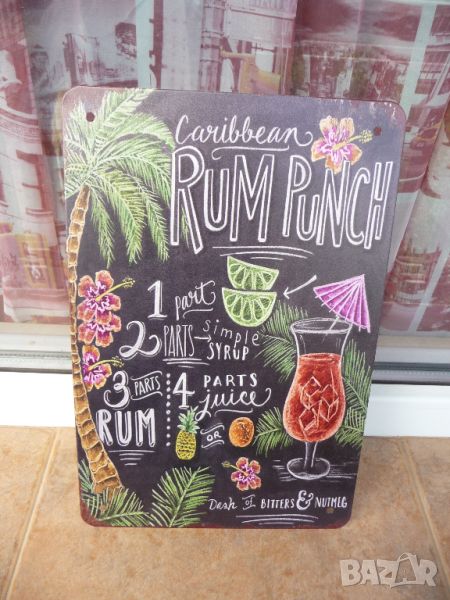 Caribbean
RUM PUNCH
1 part
2 PARTS simple SYRUP
3 PARTS RUM
4 PARTS juice
OR
Dash OF BITTERS & NUTMEG
BAZAR